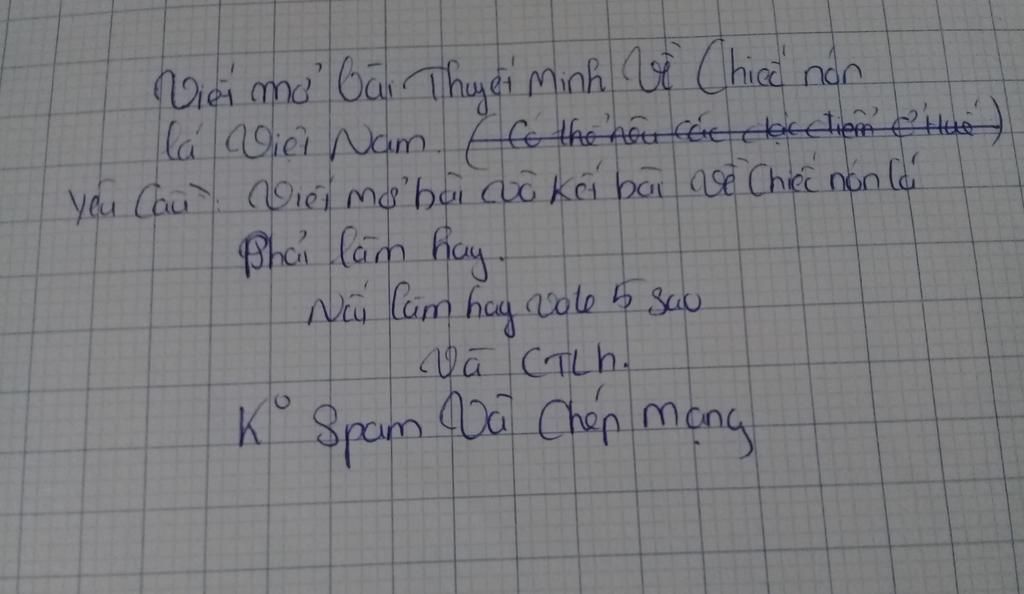 Viết mở bài Thuyết Minh Về Chiếc nón
lá Việt Nam. (Có thể nêu các đặc điểm ở Huế)
Yêu Cầu: Viết mở bài và kết bài về Chiếc nón lá
Phải làm hay.
Nếu làm hay vote 5 sao
Và CTLh.
K° Spam Và Chép mạng